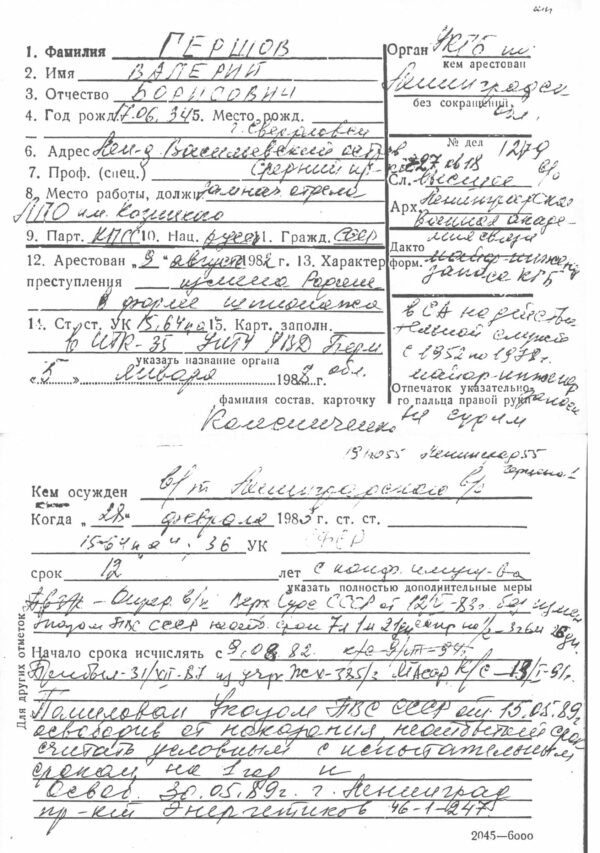 1. Фамилия ГЕРШОВ
2. Имя ВАЛЕРИЙ
3. Отчество БОРИСОВИЧ
4. Год рожд. 17.06.34 5. Место рожд.
г. Свердловск
6. Адрес Лен-д Васильевский остров
7. Проф. (спец.) Средний пр-
8. Место работы, должн.
ЛПО им. Козицкого
9. Парт. КПСС 10. Нац. русск 11. Гражд. СССР
12. Арестован „9" августа 1982 г. 13. Характер
преступления измена Родине
в форме шпионажа
14. Ст.ст. УК 15, 64 п а 15. Карт. заполн.
в ИТК-35 УИТУ УВД Перм обл.
указать название органа
„5" января 1988 г.
фамилия состав. карточку
Колесниченко
Орган УКГБ по
кем арестован
Ленинградск.
без сокращений
обл.
№ дел 1279
Сл. высшее
Арх. Ленинградская
Военная акаде-
Дакто мия связи
форм. майор-инженер
запаса КГБ
в СА на действи
тельной службе
с 1952 по 1978 г.
майор-инженер
Отпечаток указательно-
го пальца правой руки запаса
не судим
Кем осужден в/т Ленинградского в/о
Когда „28" февраля 1983 г. ст. ст.
15-64 п а ч. 36 УК
срок 12 лет с конф. имущ-ва
указать полностью дополнительные меры
Опред. в/к Верх Суда СССР от
Указом ПВС СССР
Начало срока исчислять с 9.08.82.
Прибыл-31/XII-87 из учр ЖХ-385/
Для других отметок
Помилован Указом ПВС СССР от 15.05.89г
освободив от наказания, неотбытый срок
считать условным с испытательным
сроком на 1 год и
Освоб. 30.05.89г. г. Ленинград
пр-кт Энергетиков 46-1-247
2045—6000